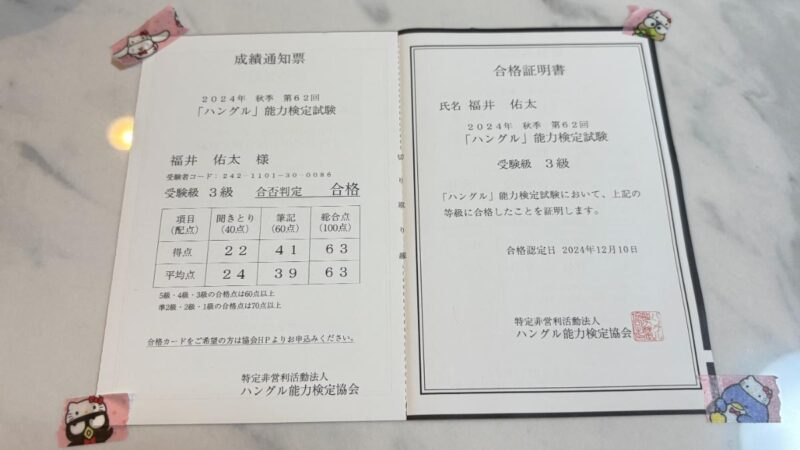 成績通知票
2024年 秋季 第62回
「ハングル」能力検定試験
福井 佑太 様
受験者コード：242-1101-30-0086
受験級 3級 合否判定 合格
項目 (配点) 聞きとり (40点) 筆記 (60点) 総合点 (100点)
得点 22 41 63
平均点 24 39 63
5級・4級・3級の合格点は60点以上
準2級・2級・1級の合格点は70点以上
合格カードをご希望の方は協会HPよりお申込みください。
特定非営利活動法人
ハングル能力検定協会
切り取り線
合格証明書
氏名 福井 佑太
2024年 秋季 第62回
「ハングル」能力検定試験
受験級 3級
「ハングル」能力検定試験において、上記の
等級に合格したことを証明します。
合格認定日 2024年12月10日
特定非営利活動法人
ハングル能力検定協会